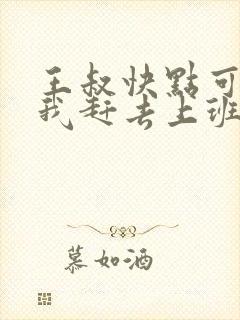 王叔快點可
我赶去上班
慕如酒